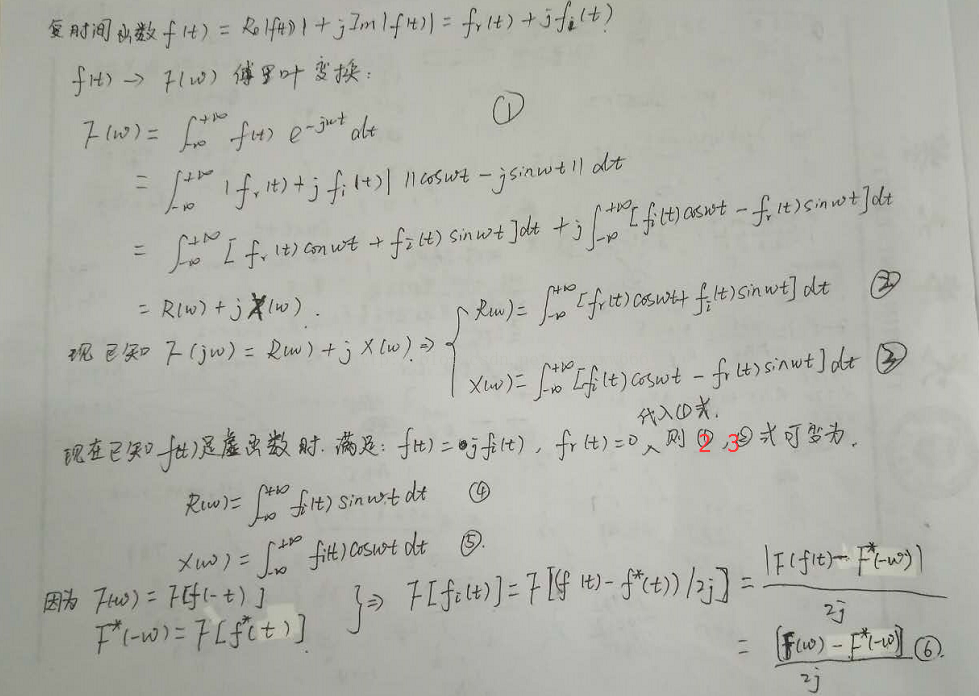 复时间函数 f(t) = Re|f(t)| + jIm|f(t)| = fr(t) + jfi(t)
f(t) → F(w) 傅里叶变换:
F(w) = ∫_{-∞}^{+∞} f(t) e^{-jwt} dt ①
= ∫_{-∞}^{+∞} |fr(t) + j fi(t)| ||coswt - jsinwt|| dt
= ∫_{-∞}^{+∞} [fr(t) conwt + fi(t) sinwt]dt + j∫_{-∞}^{+∞} [fi(t)coswt - fr(t)sinwt]dt
= R(w) + jX(w).
R(w) = ∫_{-∞}^{+∞} [fr(t)coswt + fi(t)sinwt] dt ②
现已知 F(jw) = R(w) + j X(w) ⇒
X(w) = ∫_{-∞}^{+∞} [fi(t)coswt - fr(t)sinwt] dt ③
代入①式.
现在已知 f(t)是虚函数时. 满足: f(t) = jfi(t), fr(t) = 0, 则 2, 3 式可变为.
R(w) = ∫_{-∞}^{+∞} fi(t) sinwt dt ④
X(w) = ∫_{-∞}^{+∞} fi(t) coswt dt ⑤.
因为 F(w) = F[f(-t)]
F*(-w) = F[f*(t)]
} ⇒ F[fi(t)] = F[(f(t) - f*(t))/2j] = |F(f(t) - F*(-w)| / 2j
= [F(w) - F*(-w)] / 2j ⑥.